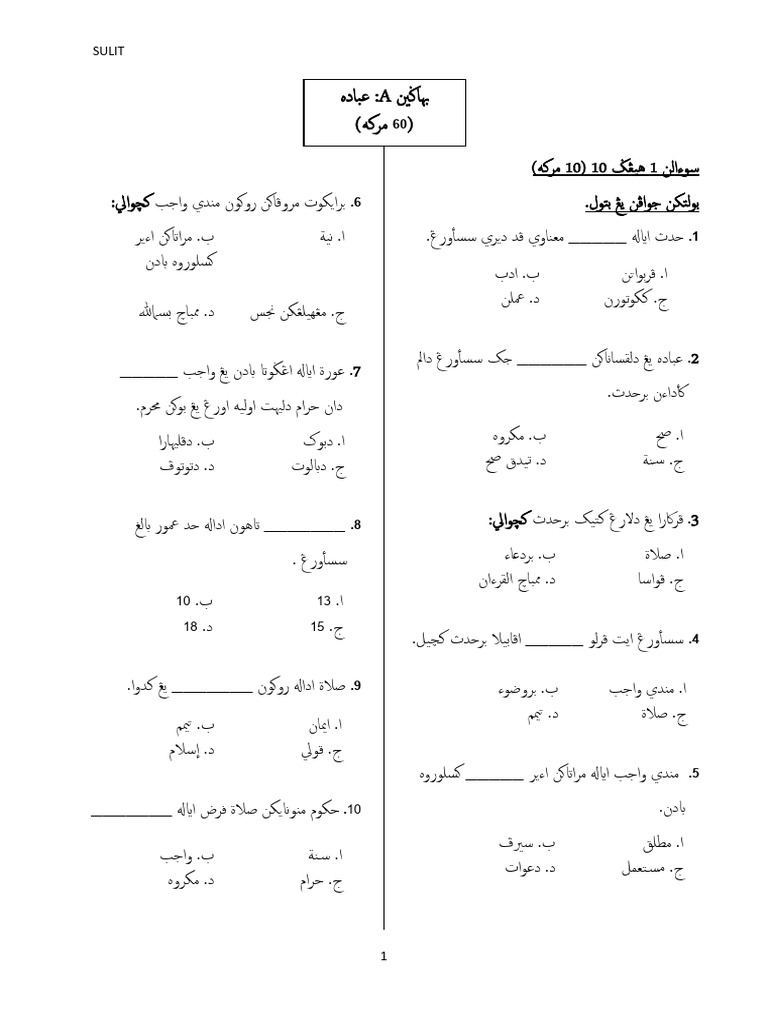 SULIT
بهاݢين A: عباده
(60 مركه)
سوءالن 1 هيڠݢ 10 (10 مركه)
بولتكن جواڤن يڠ بتول.
1. حدث اياله ________ معناوي ڤد ديري سسأورڠ.
ا. ڤربواتن ب. ادب
ج. ككوتورن د. عملن
2. عباده يڠ دلقساناكن __________ جك سسأورڠ دالم
كأداءن برحدث.
ا. صح ب. مكروه
ج. سنة د. تيدق صح
3. ڤركارا يڠ دلارڠ كتيک برحدث كچوالي:
ا. صلاة ب. بردعاء
ج. ڤواسا د. ممباچ القرءان
4. سسأورڠ ايت ڤرلو ________ اڤابيلا برحدث كچيل.
ا. مندي واجب ب. بروضوء
ج. صلاة د. تيمم
5. مندي واجب اياله مراتاكن اءير ________ كسلوروه
بادن.
ا. مطلق ب. سيرڤ
ج. مستعمل د. دعوات
6. برايكوت مروڤاكن روكون مندي واجب كچوالي:
ا. نية ب. مراتاكن اءير
كسلوروه بادن
ج. مڠهيلڠكن نجس د. ممباچ بسم الله
7. عورة اياله اڠݢوتا بادن يڠ واجب ________
دان حرام دليهت اوليه اورڠ يڠ بوكن محرم.
ا. دبوک ب. دڤليهارا
ج. دبالوت د. دتوتوڤ
8. ___________ تاهون اداله حد عمور بالغ
سسأورڠ .
ا. 13 ب. 10
ج. 15 د. 18
9. صلاة اداله روكون ___________ يڠ كدوا.
ا. ايمان ب. تيمم
ج. قولي د. إسلام
10. حكوم منونايكن صلاة فرض اياله ___________
ا. سنة ب. واجب
ج. حرام د. مكروه
1